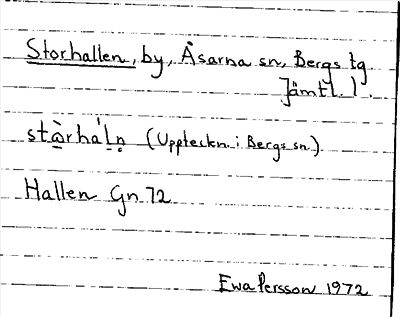 Storhallen, by, Åsarna sn, Bergs tg
Jämtl. l.
stà̱rha'l̠n̥ (Uppteckn. i Bergs sn.)
Hallen Gn 72
Ewa Persson 1972